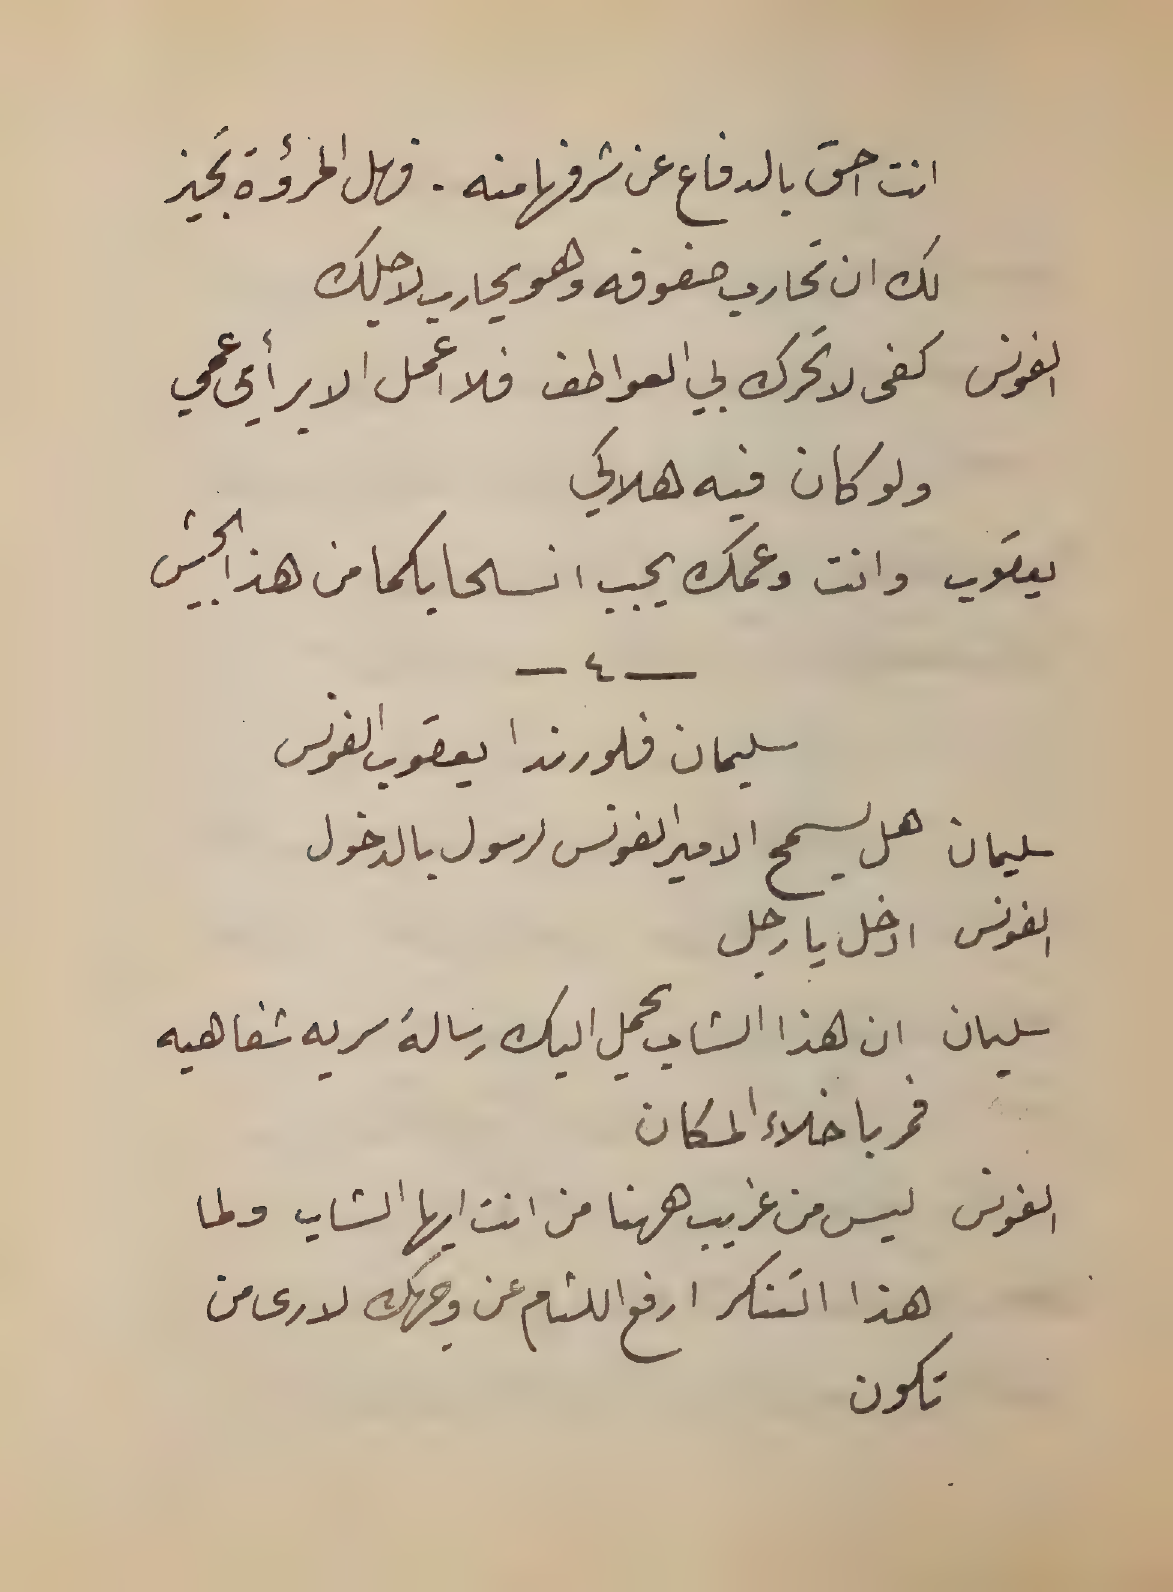 انت احق بالدفاع عن شرفها منه . فهل المرؤة تجيز
لك ان تحارب صفوفه وهو يحارب لاجلك
الفونس كفى لا تحرك بي العواطف فلا اعمل الا برأي عمي
ولو كان فيه هلاكي
يعقوب وانت وعمك يجب انسحابكما من هذا الجيش
— ٤ —
سليمان فلورندا يعقوب الفونس
سليمان هل يسمح الامير الفونس لرسول بالدخول
الفونس ادخل يا رجل
سليمان ان هذا الشاب يحمل اليك رسالة سريه شفاهيه
فمر باخلاء المكان
الفونس ليس من غريب ههنا من انت ايها الشاب ولما
هذا التنكر ارفع اللثام عن وجهك لارى من
تكون